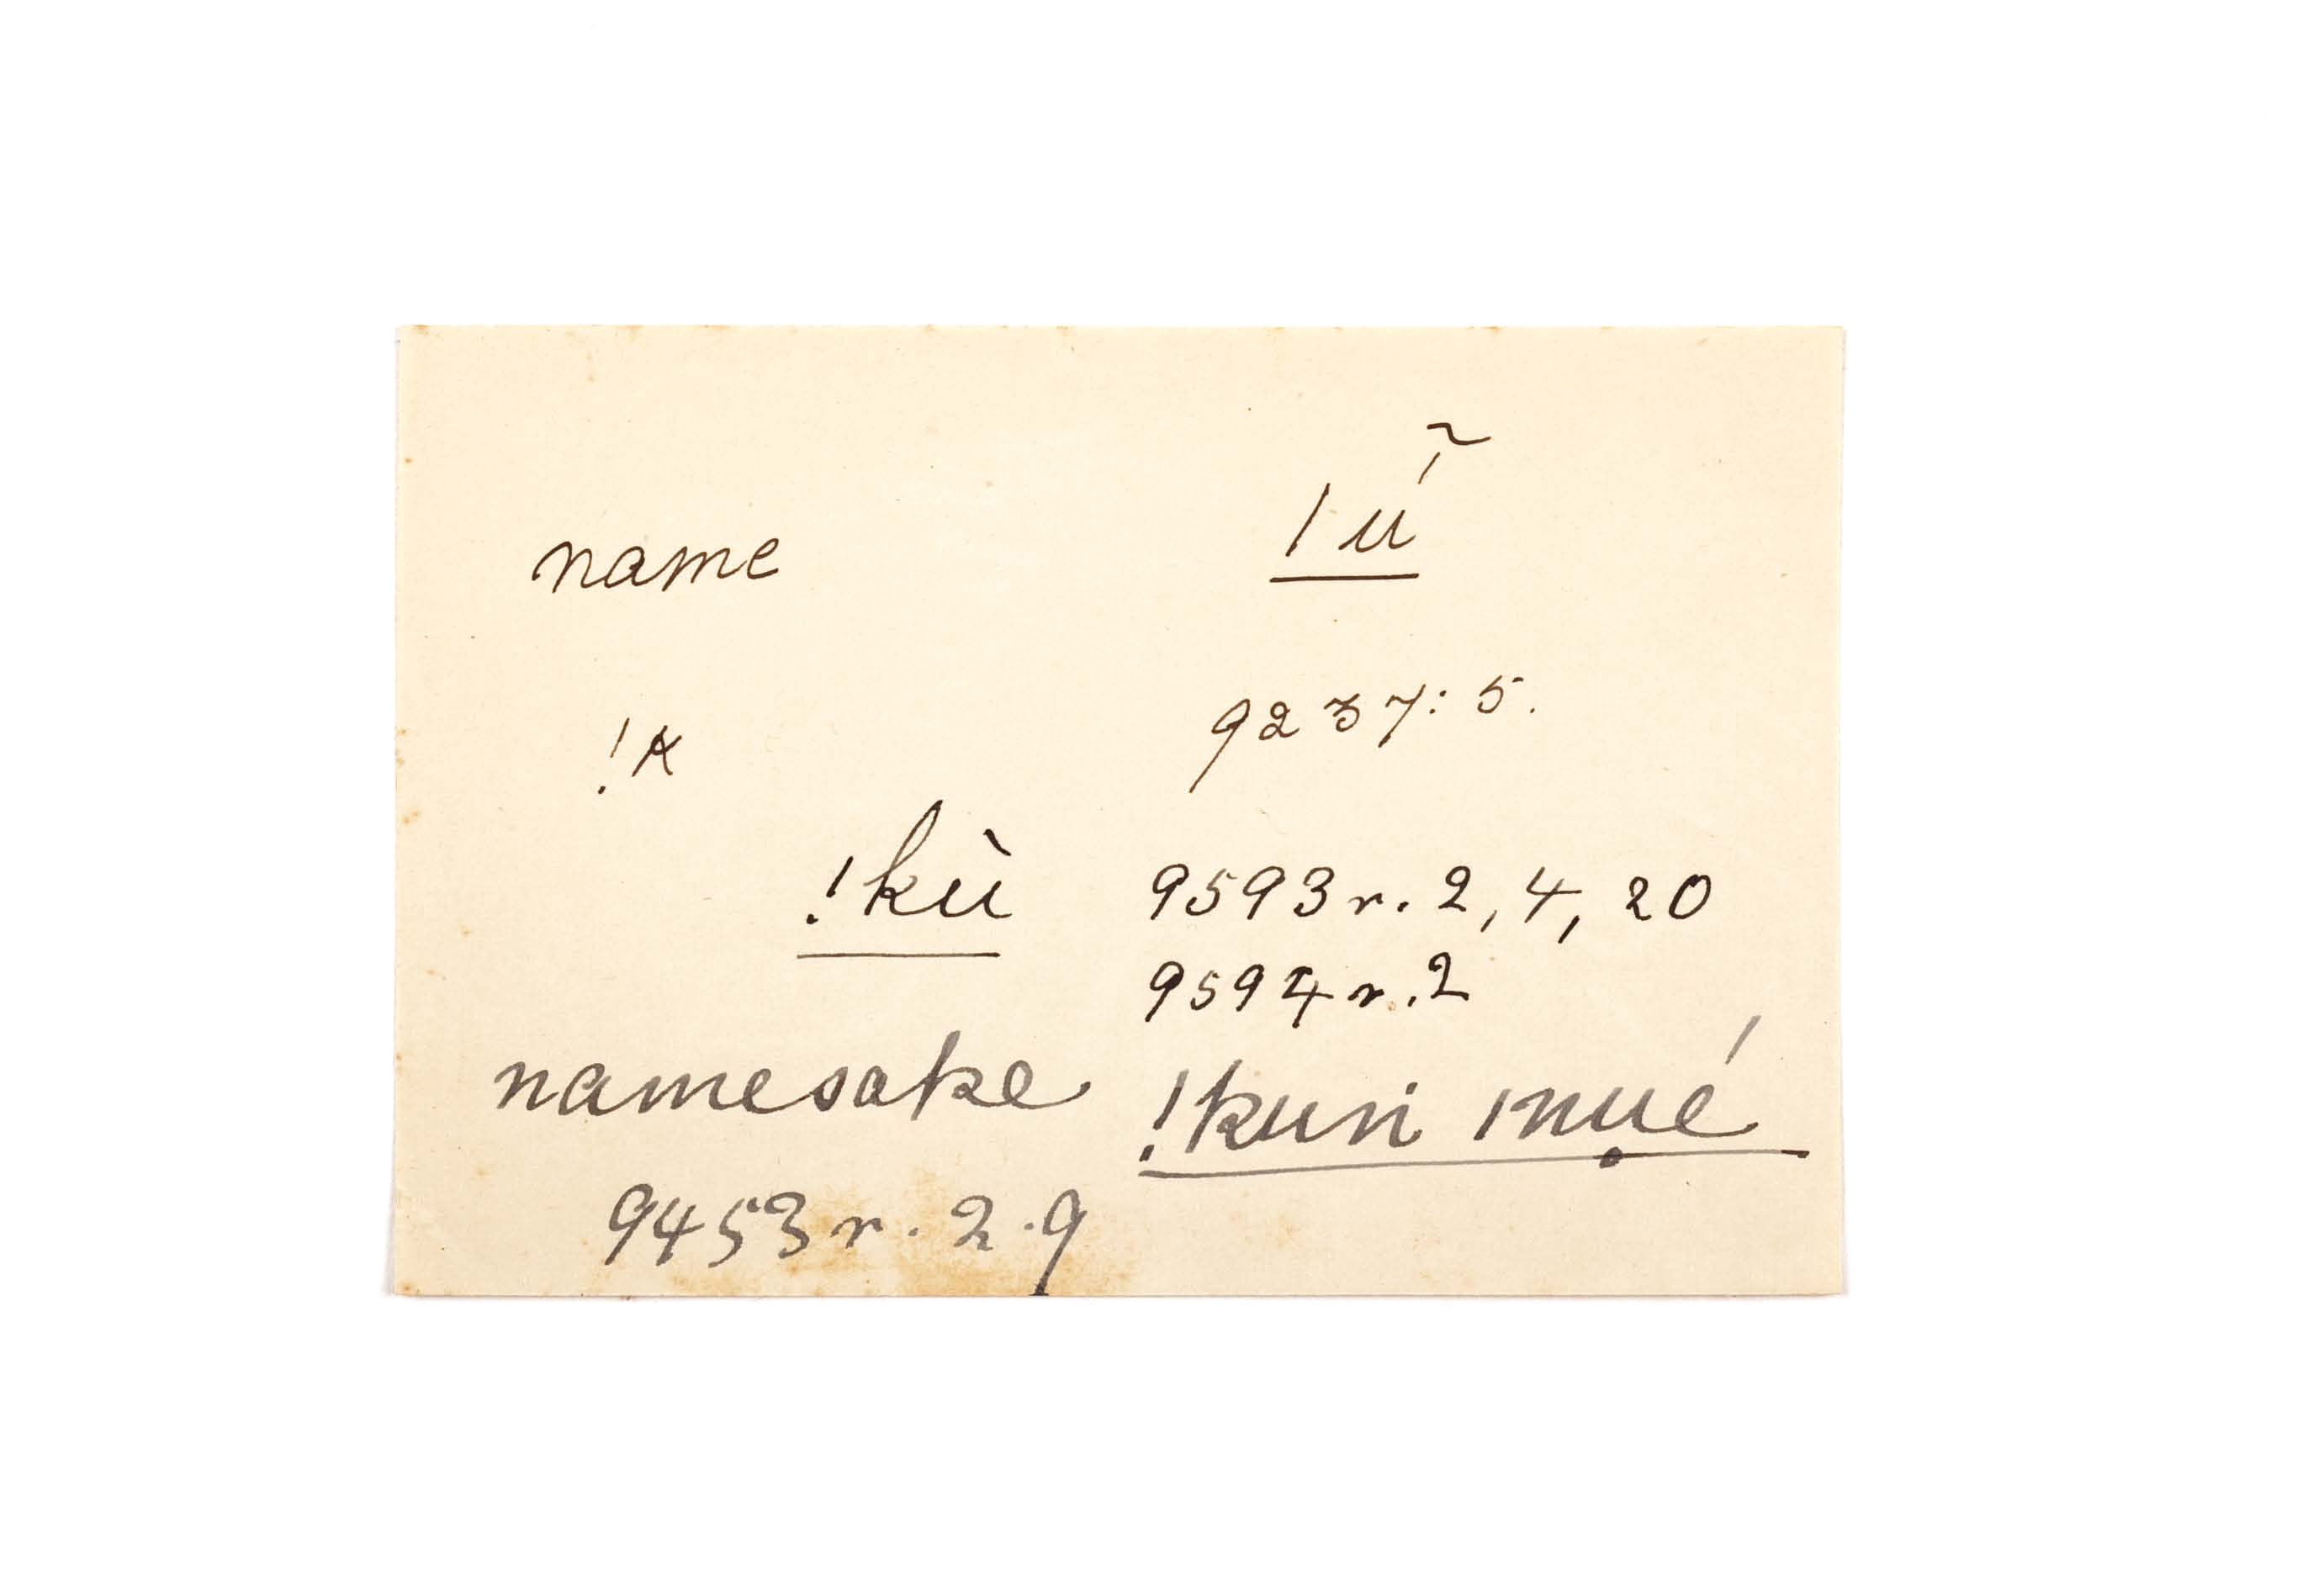 name ǀṹ
!k 9237: 5.
!kù 9593 r. 2, 4, 20
9594 r. 2
namesake !kuri ǀnụé
9453 r. 2. 9